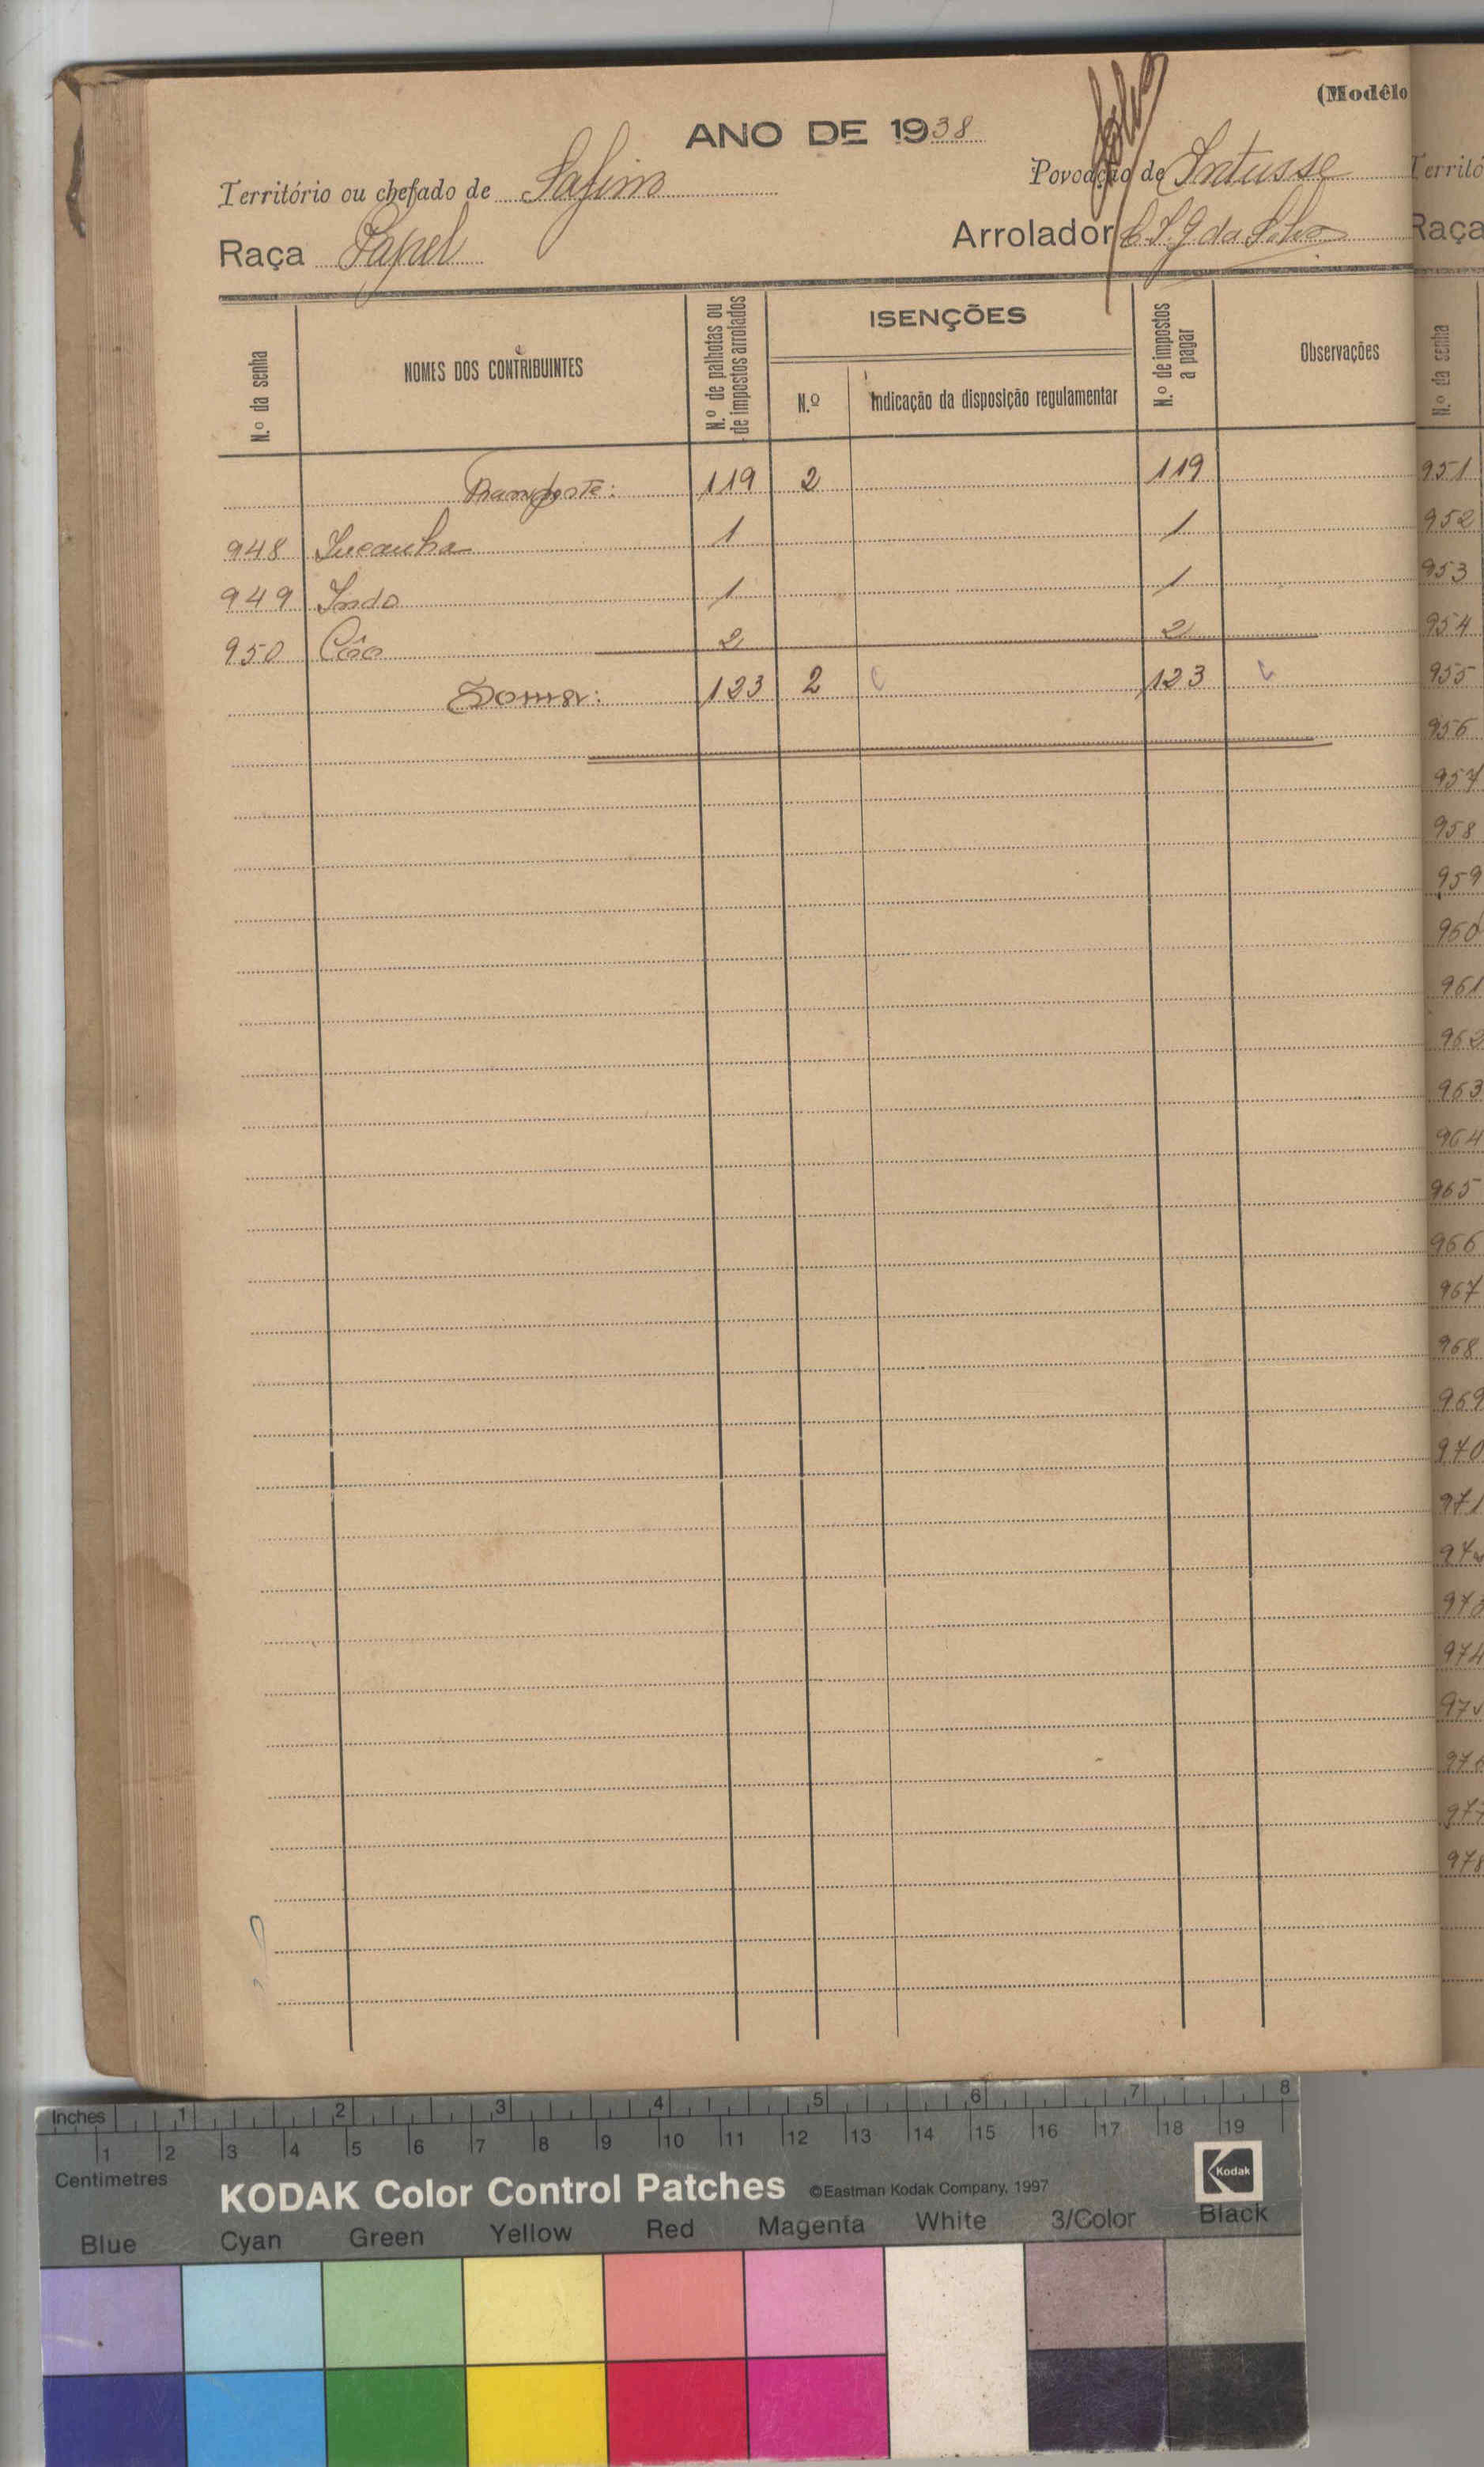 (Modêlo
ANO DE 1938
Território ou chefado de Safim
Povoação de Intusse
Raça Papel
Arrolador C. S. G da Silva
N.º da senha
NOMES DOS CONTRIBUINTES
N.º de palhotas ou de impostos arrolados
ISENÇÕES
N.º
Indicação da disposição regulamentar
N.º de impostos a pagar
Observações
Transporte: 119 2 119
948 Sucanha 1 1
949 Indo 1 1
950 Côo 2 2
Soma: 123 2 123
Territó
Raça
N.º da senha
951
952
953
954
955
956
957
958
959
960
961
962
963
964
965
966
967
968
969
970
971
973
974
976
977
978
Inches 1 2 3 4 5 6 7 8
1 2 3 4 5 6 7 8 9 10 11 12 13 14 15 16 17 18 19
Centimetres
KODAK Color Control Patches ©Eastman Kodak Company, 1997 Kodak
Blue Cyan Green Yellow Red Magenta White 3/Color Black